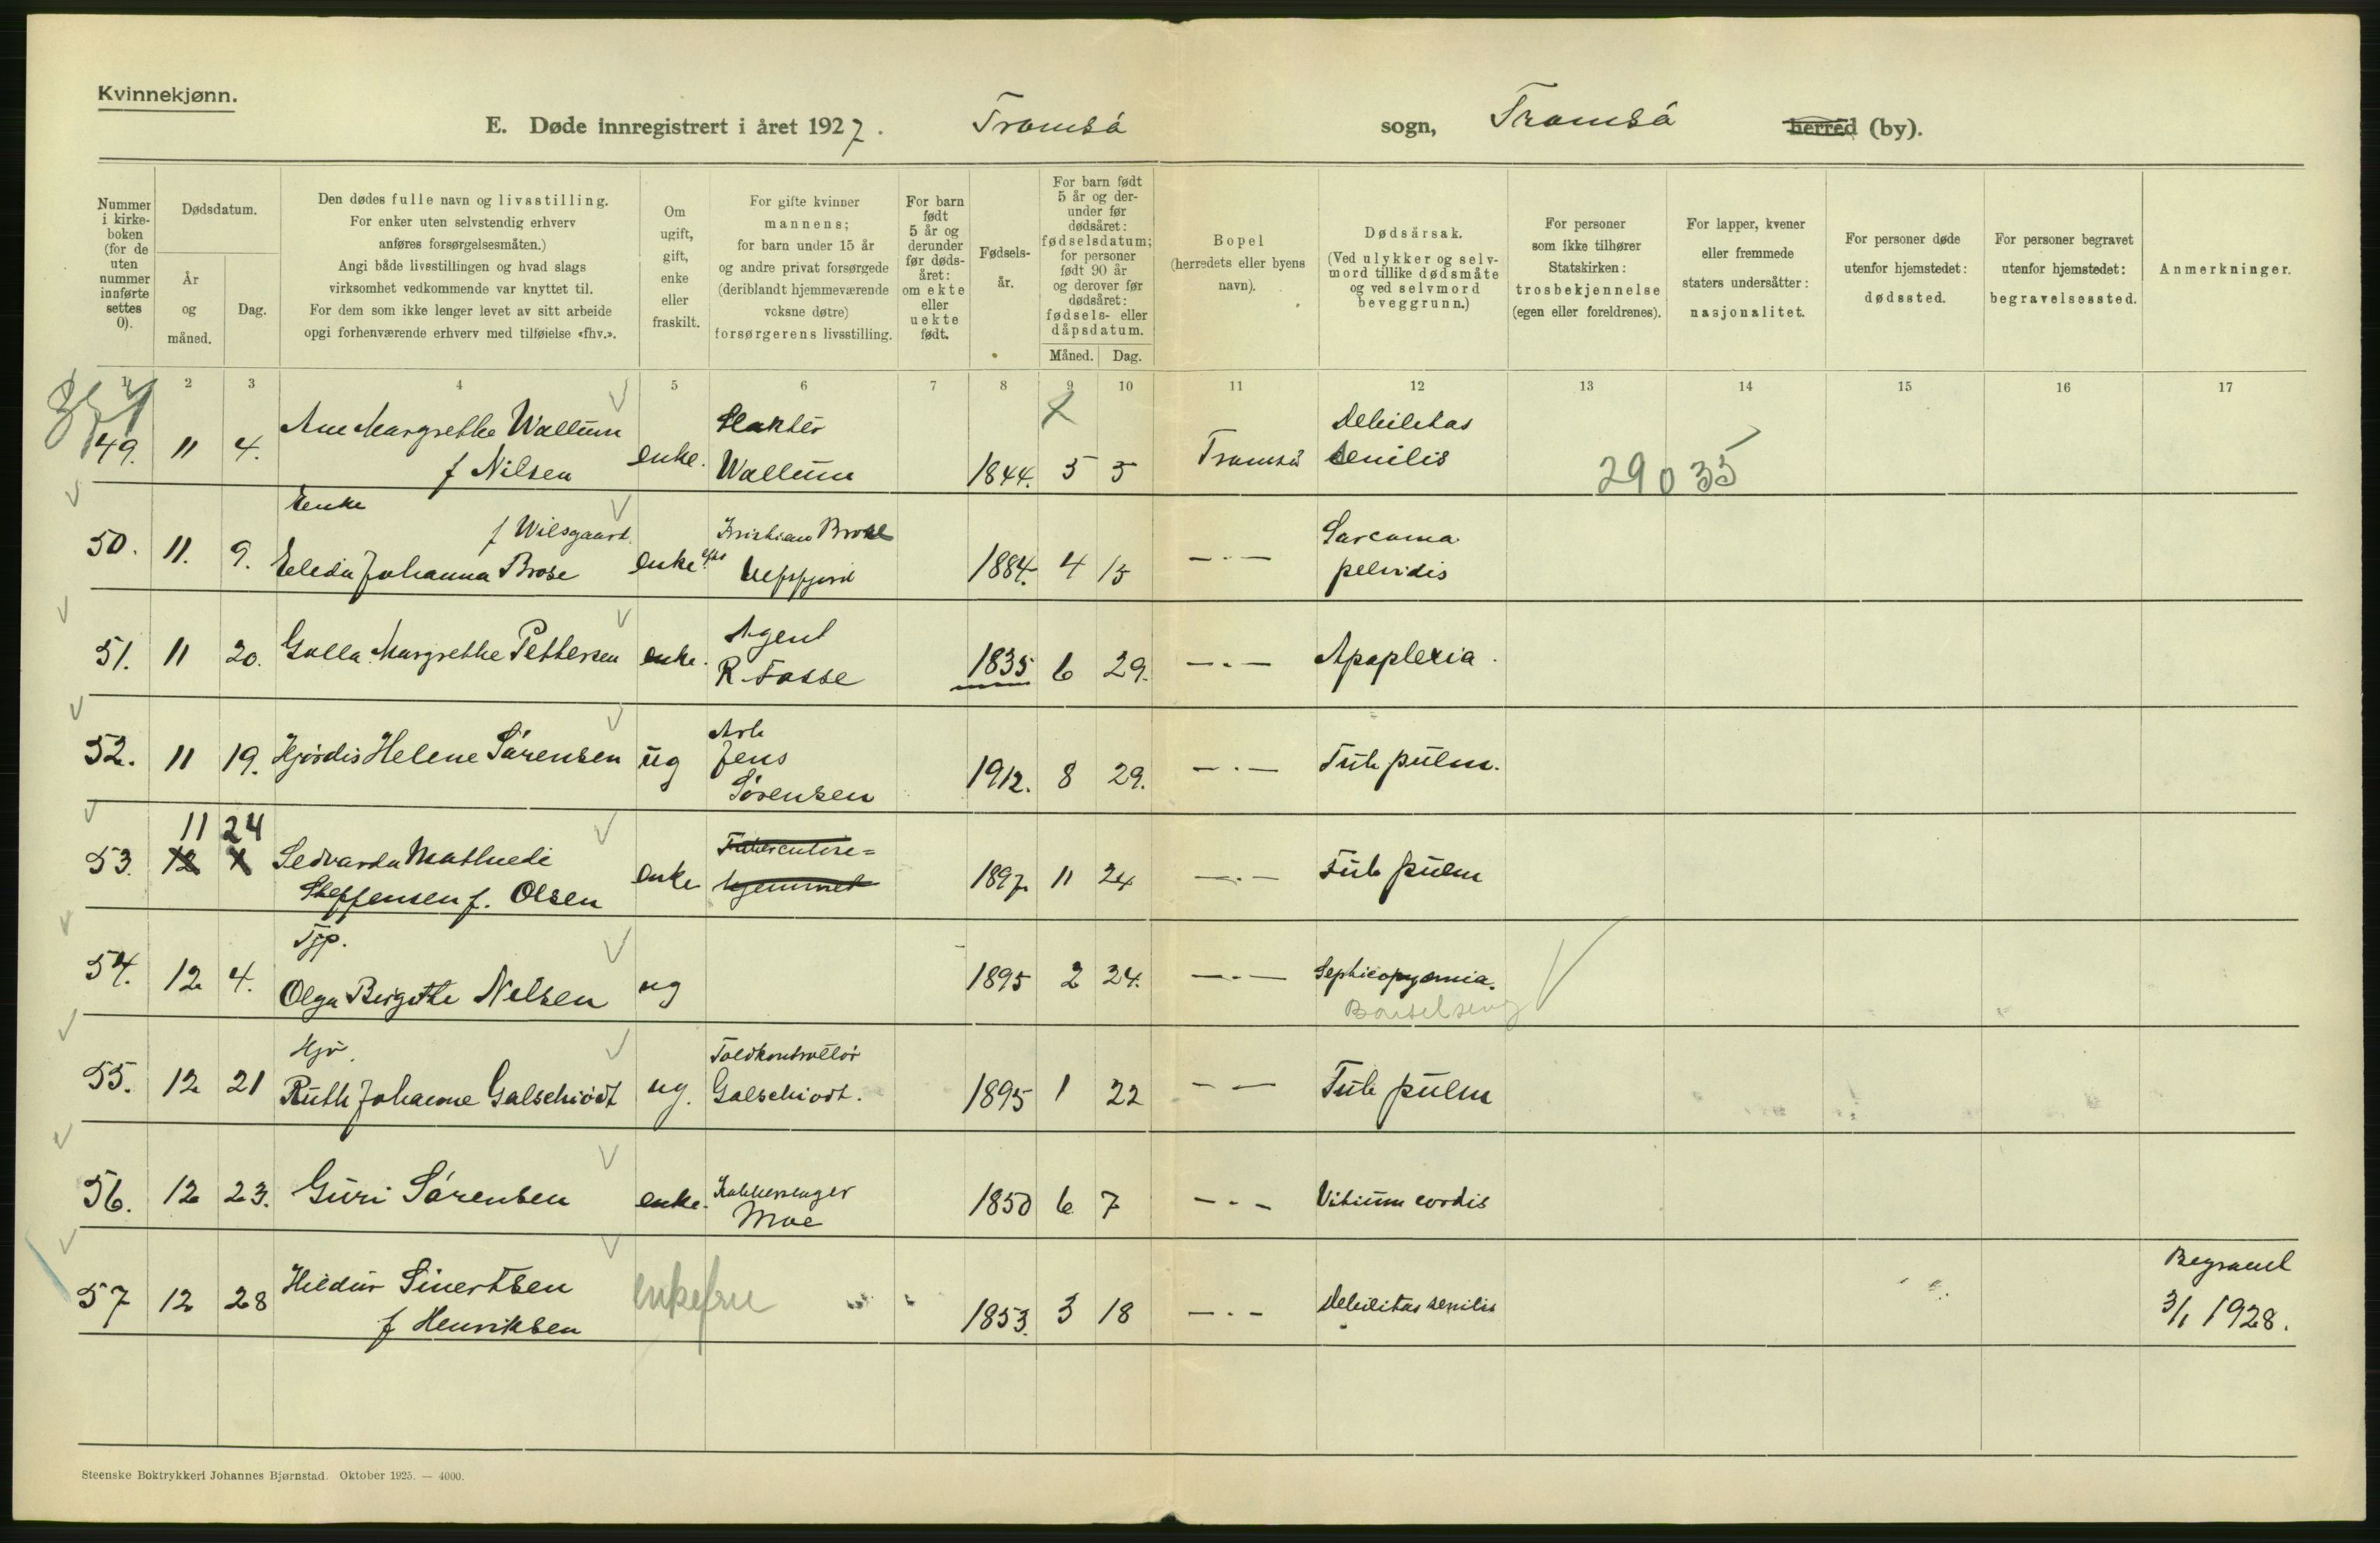 Kvinnekjønn.
E. Døde innregistrert i året 1927. Tromsö sogn, Tromsö herred (by).
Nummer i kirkeboken (for de uten nummer innførte settes 0).
Dødsdatum.
År og måned.
Dag.
Den dødes fulle navn og livsstilling.
For enker uten selvstendig erhverv
anføres forsørgelsesmåten.)
Angi både livsstillingen og hvad slags
virksomhet vedkommende var knyttet til.
For dem som ikke lenger levet av sitt arbeide
opgi forhenværende erhverv med tilføielse «fhv.».
Om ugift, gift, enke eller fraskilt.
For gifte kvinner
mannens;
for barn under 15 år
og andre privat forsørgede
(deriblandt hjemmeværende
voksne døtre)
forsørgerens livsstilling.
For barn født 5 år og derunder før dødsåret: om ekte eller uekte født.
Fødselsår.
For barn født 5 år og derunder før dødsåret: fødselsdatum; for personer født 90 år og derover før dødsåret: fødsels- eller dåpsdatum.
Måned. Dag.
Bopel
(herredets eller byens
navn).
Dødsårsak.
(Ved ulykker og selvmord tillike dødsmåte og ved selvmord beveggrunn.)
For personer
som ikke tilhører
Statskirken:
trosbekjennelse
(egen eller foreldrenes).
For lapper, kvener
eller fremmede
staters undersåtter:
nasjonalitet.
For personer døde
utenfor hjemstedet:
dødssted.
For personer begravet
utenfor hjemstedet:
begravelsessted.
Anmerkninger.
1 2 3 4 5 6 7 8 9 10 11 12 13 14 15 16 17
49. 11 4. Ane Margrethe Wallum f Nilsen enke. Slakter Wallum 1844. 5 5 Tromsö Debilitas senilis
29035
50. 11. 9. Enke f Wilsgaard Elida Johanna Brose enke efter Kristian Brose 1884. 4 15 —·— Sarcoma pelvidis
51. 11 20. Golla Margrethe Pettersen enke. Agent R. Fosse 1835 6 29. —·— Apoplexia.
52. 11 19. Hjördis Helene Sörensen ug Arb Jens Sörensen 1912. 8 29. —·— Tub pulm.
11 24
53. 12 1 Sedvarda Mathilde Steffensen f. Olsen enke Tuberculose= hjemmet 1897 11 24 —·— Tub pulm
54. 12 4. Tjp. Olga Birgitte Nelsen ug 1895 2 24. —·— Septicopyæmia.
Barselseng
55. 12 21 Hjv. Ruth Johanne Galschiödt ug. Toldkontrollör Galschiödt. 1895 1 22 — — Tub pulm
56. 12 23. Guri Sörensen enke. Moe 1850 6 7 —·— Vitium cordis
57 12 28 Hildur Sivertsen f Henriksen enkefru 1853. 3 18 —·— Debilitas senilis Begravet 3/1 1928.
Steenske Boktrykkeri Johannes Bjørnstad. Oktober 1925. — 4000.